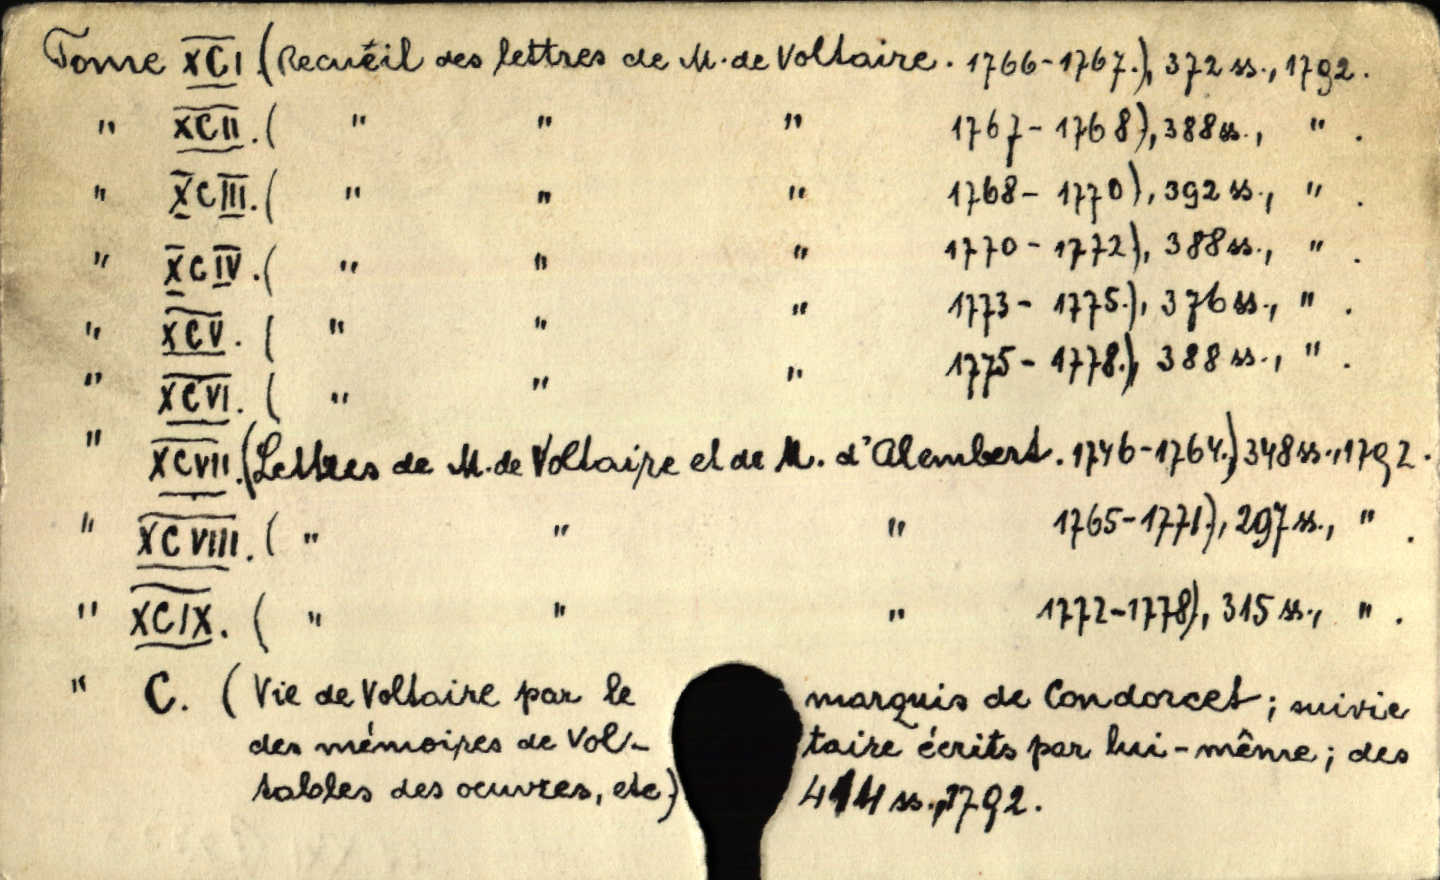 Tome XCI (Recuéil des lettres de M. de Voltaire. 1766-1767.), 372 ss., 1792.
" XCII. ( " " " 1767-1768), 388 ss., " .
" XCIII. ( " " " 1768-1770), 392 ss., " .
" XCIV. ( " " " 1770-1772), 388 ss., " .
" XCV. ( " " " 1773-1775.), 376 ss., " .
" XCVI. ( " " " 1775-1778.), 388 ss., " .
" XCVII. (Lettres de M. de Voltaire et de M. d'Alembert. 1746-1764.) 348 ss., 1792.
" XCVIII. ( " " " 1765-1771), 297 ss., " .
" XCIX. ( " " " 1772-1778), 315 ss., " .
" C. (Vie de Voltaire par le marquis de Condorcet; suivie
des mémoires de Vol-taire écrits par lui-même; des
tables des oeuvres, etc) ss., 1792.